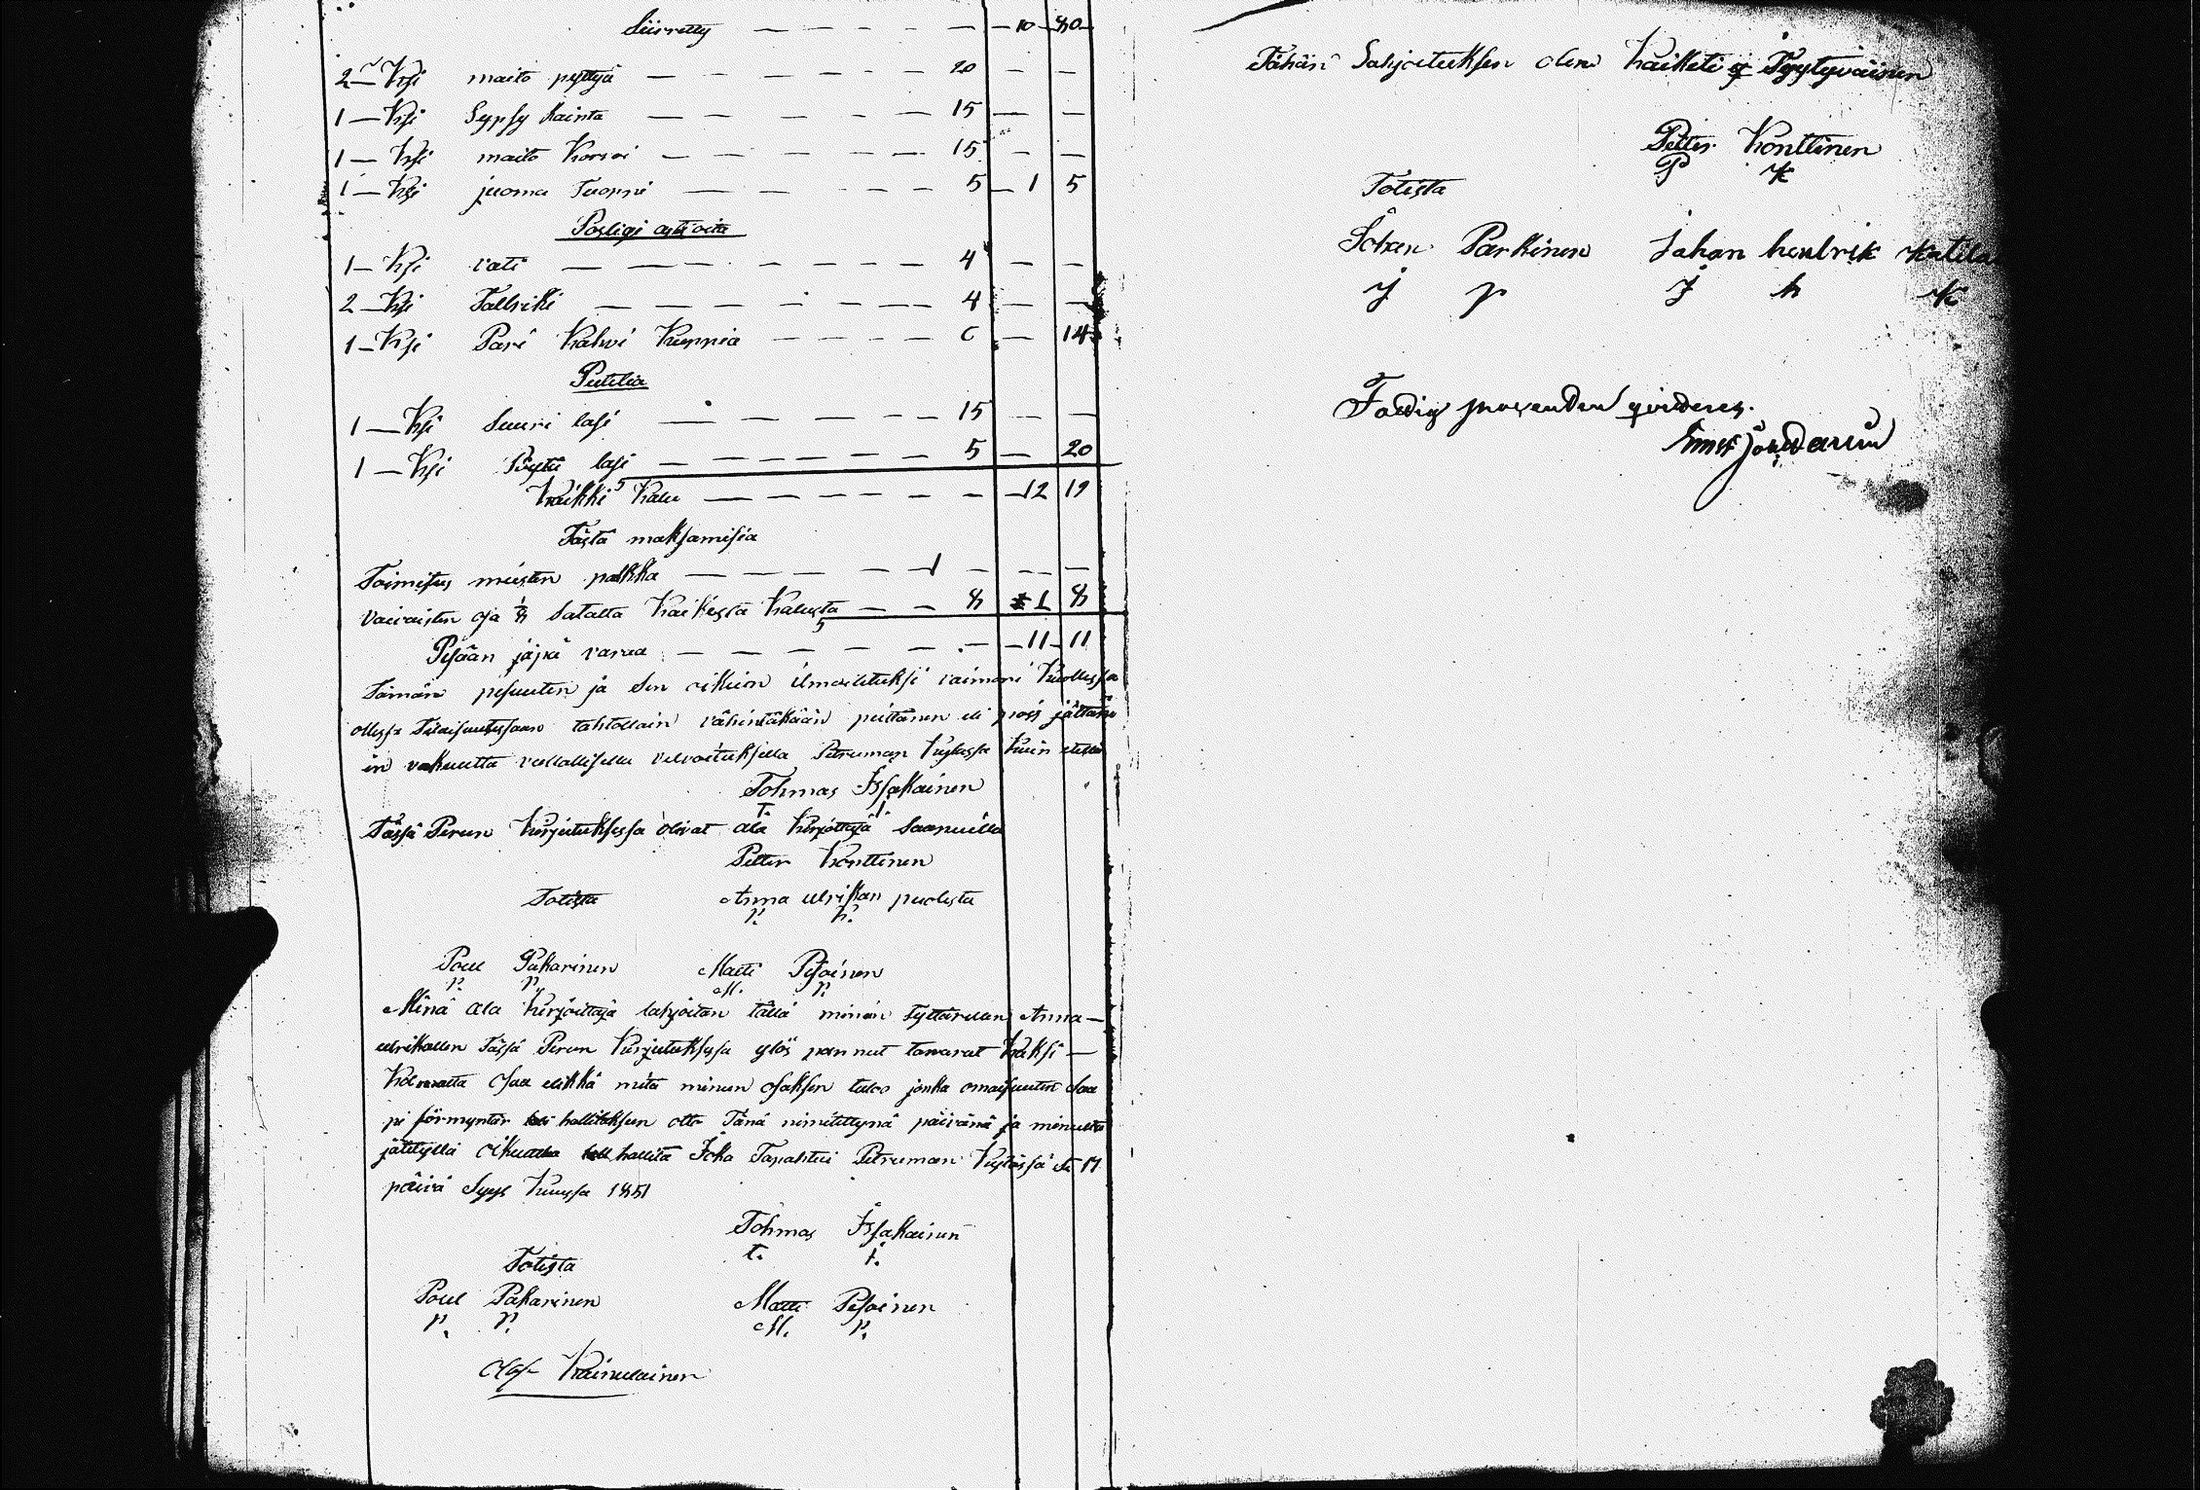 Siirretty — — — — — — 10 — 80 —
2 — Kpl maito pyttyä — — — — — 20 — —
1 — Kpl Lypsy Kainta — — — — — 15 — —
1 — Kpl maito Korvoi — — — — — — 15 — —
1 — Kpl juoma Tuoppi — — — — — 5 — 1 5
Posligi astioita
1 — Kpl vati — — — — — — — 4 — —
2 — Kpl Tallriki — — — — — — 4 — —
1 — Kpl Pari Kahvi Kuppia — — — — 6 — 14
Putelia
1 — Kpl Suuri lasi — — — — — 15 — —
1 — Kpl Pöytä lasi — — — — — — 5 — 20
Kaikki Kalu — — — — — — 12 19
Tästä maksamisia
Toimitus miesten palkka — — — — 1 — — —
vaivaisten osa 1/8 Satalta Kaikesta Kalusta — — 8 1 8
Pesään jäpä varaa — — — — — — 11 — 11
Tämän pesuuten ja sen oikian ilmoituksi vaimoni Kuollessa
ollessa Tilaisuutessaan tahtollain vähintäkään peittämen eli pois jättäm
in vakuutta vallallisella velvoituksella Petruman Kylässa Kuin ellä
Tohmas Issakainen
T. I.
Tässä Perun Kirjutuksessa olivat ala Kirjottajä Saapuilla
Petter Konttinen
Totista Anna ulrikan puolesta
P. K.
Poul Pakarinen Matti Pesoinen
P. P. M. P.
Minä ala Kirjoittaja lahjoitan tällä minun Tyttärellen Anna —
ulrikallen Tässä Perun Kirjutuksessa ylös pannut tavarat Kaksi —
Kolmatta Osaa elikkä mitä minun osaksen tuloo jonka omaisuuten Saa
pi förmyntär hallituksen otta Tänä nimitettynä päivänä ja minulta
jätetyllä oikuulla hallita Joka Tapahtui Petruman Kylässä 17
päivä Syys Kuussa 1851
Tohmas Issakainen
T. I.
Totista
Poul Pakarinen Matti Pesoinen
P. P. M. P.
Olof Kainulainen
Tähän Lahjoituksen olen Kaiketi Tyytyväinen
Petter Konttinen
P K
Totista
Johan Parkinen Johan hendrik Katila
J p J h K